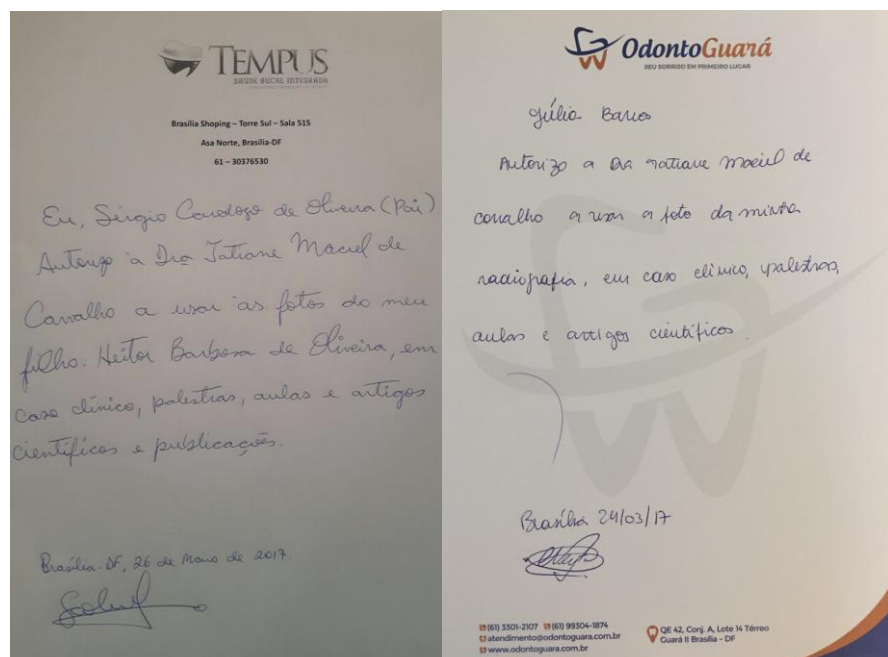 TEMPUS
SAÚDE BUCAL INTEGRADA
Brasília Shoping – Torre Sul – Sala 515
Asa Norte, Brasília-DF
61 – 30376530
Eu, Sérgio Cardoso de Oliveira (Pai)
Autorizo a Dra Tatiane Maciel de
Carvalho a usar as fotos do meu
filho: Heitor Barbosa de Oliveira, em
caso clínico, palestras, aulas e artigos
científicos e publicações.
Brasília-DF, 26 de Maio de 2017.
OdontoGuará
SEU SORRISO EM PRIMEIRO LUGAR
Júlia Barros
Autorizo a Dra Tatiane Maciel de
Carvalho a usar a foto da minha
radiografia, em caso clínico, palestras,
aulas e artigos científicos.
Brasília 24/03/17
(61) 3301-2107 (61) 99304-1874
atendimento@odontoguara.com.br
www.odontoguara.com.br
QE 42, Conj. A, Lote 14 Térreo
Guará II Brasília - DF